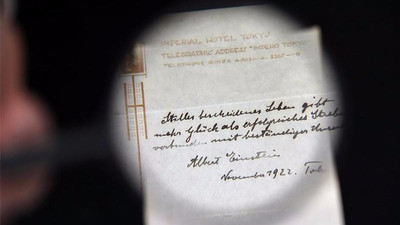 IMPERIAL HOTEL TOKYO
TELEGRAPHIC ADDRESS
Stilles bescheidenes Leben gibt
mehr Glück als erfolgreiches Streben
verbunden mit beständiger Unruhe
Albert Einstein
November 1922.